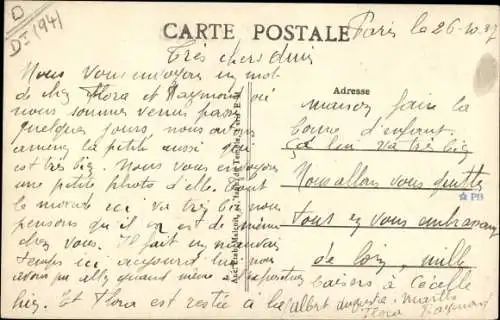 D
Dt (94)
CARTE POSTALE
Paris le 26-10-37
Très chers amis
Nous vous envoyons un mot
de chez Flora et Raymond où
nous sommes venus passer
quelques jours, nous avons
amener la petite aussi qui
est très bien. Nous vous envoyons
une petite photo d'elle. Tout
le monde ici va très bien nous
pensons qu'il en est de même
chez vous. Il fait un mauvais
temps ici aujourd'hui nous
avons pu aller quand même à l'exposition
hier. Et Flora est restée à la
Adresse
maison faire la
bonne d'enfant.
Ça lui va très bien
Nous allons vous quitter
☆ PB
tout en vous embrassant
de loin mille
baisers à Cécelle
Albert Marthe
Flora Raymond